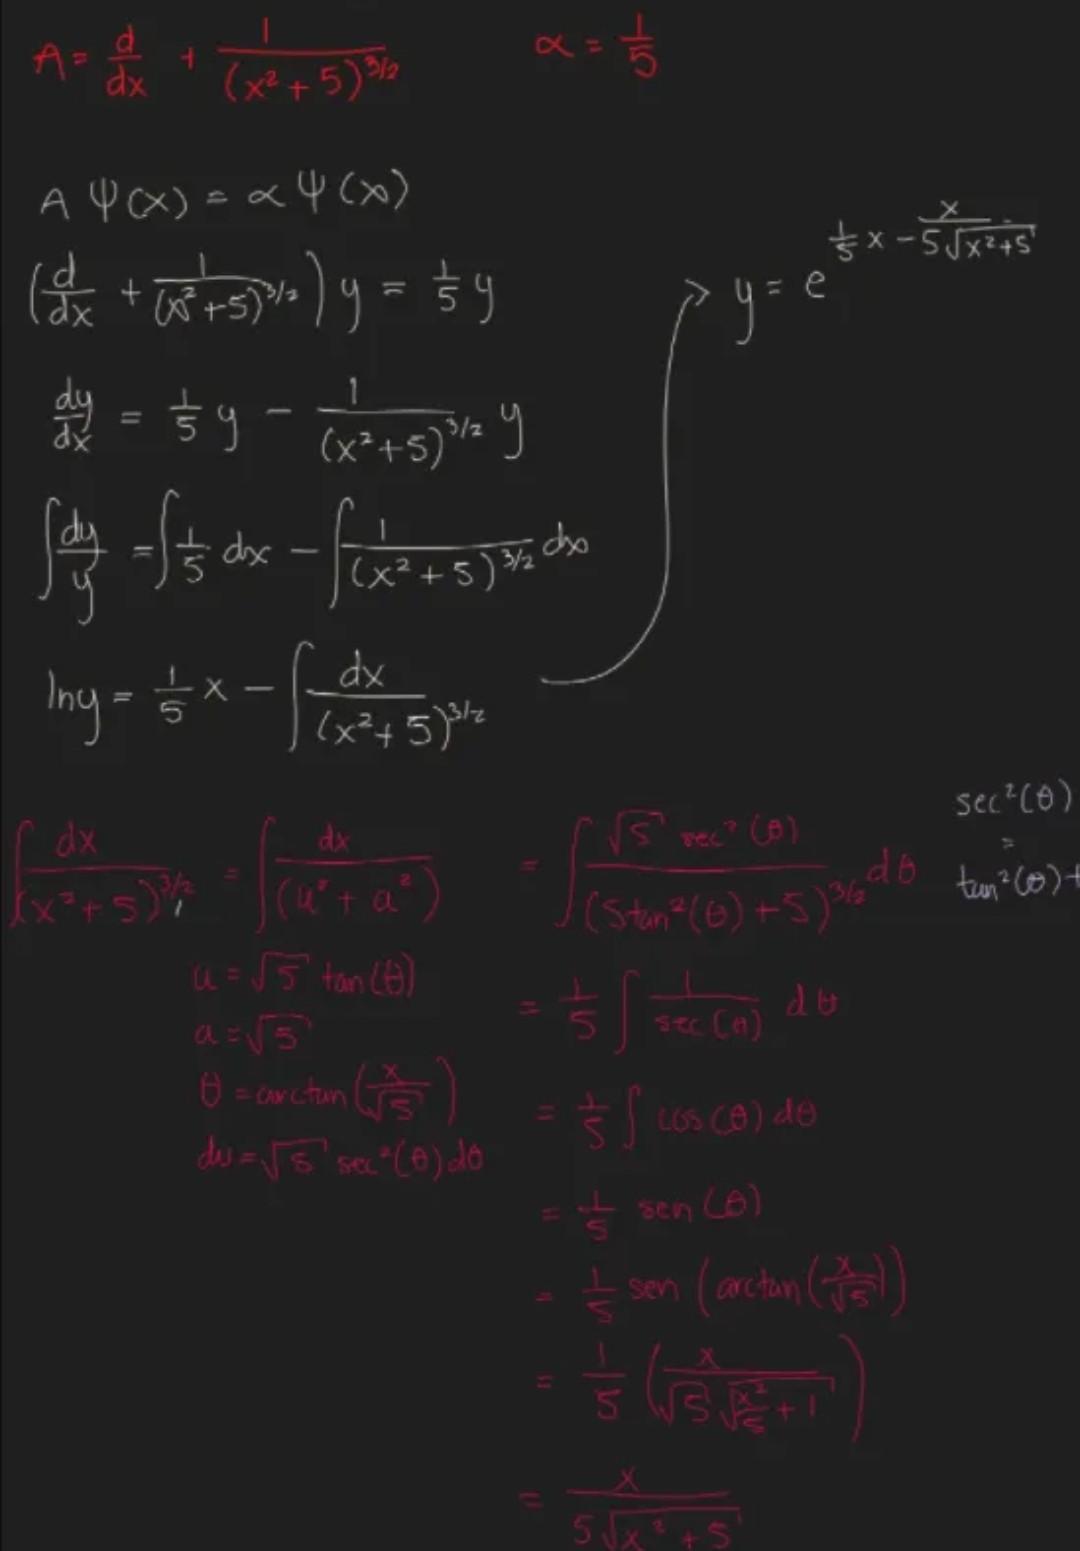 A = d/dx + 1/(x² + 5)^3/2    α = 1/5
A Ψ(x) = α Ψ(x)
(d/dx + 1/(x² + 5)^3/2) y = 1/5 y
dy/dx = 1/5 y - 1/(x² + 5)^3/2 y
∫ dy/y = ∫ 1/5 dx - ∫ 1/(x² + 5)^3/2 dx
ln y = 1/5 x - ∫ dx/(x² + 5)^3/2
→ y = e^(1/5 x - x/(5√(x² + 5)))
∫ dx/(x² + 5)^3/2 = ∫ dx/(u² + a²) = ∫ √5 sec²(θ)/(5tan²(θ) + 5)^3/2 dθ
u = √5 tan(θ)
a = √5
θ = arctan(x/√5)
du = √5 sec²(θ) dθ
= 1/5 ∫ 1/sec(θ) dθ
= 1/5 ∫ cos(θ) dθ
= 1/5 sen(θ)
= 1/5 sen(arctan(x/√5))
= 1/5 (x/(√5 √(x²/5 + 1)))
= x/(5√(x² + 5))
sec²(θ)
=
tan²(θ) +